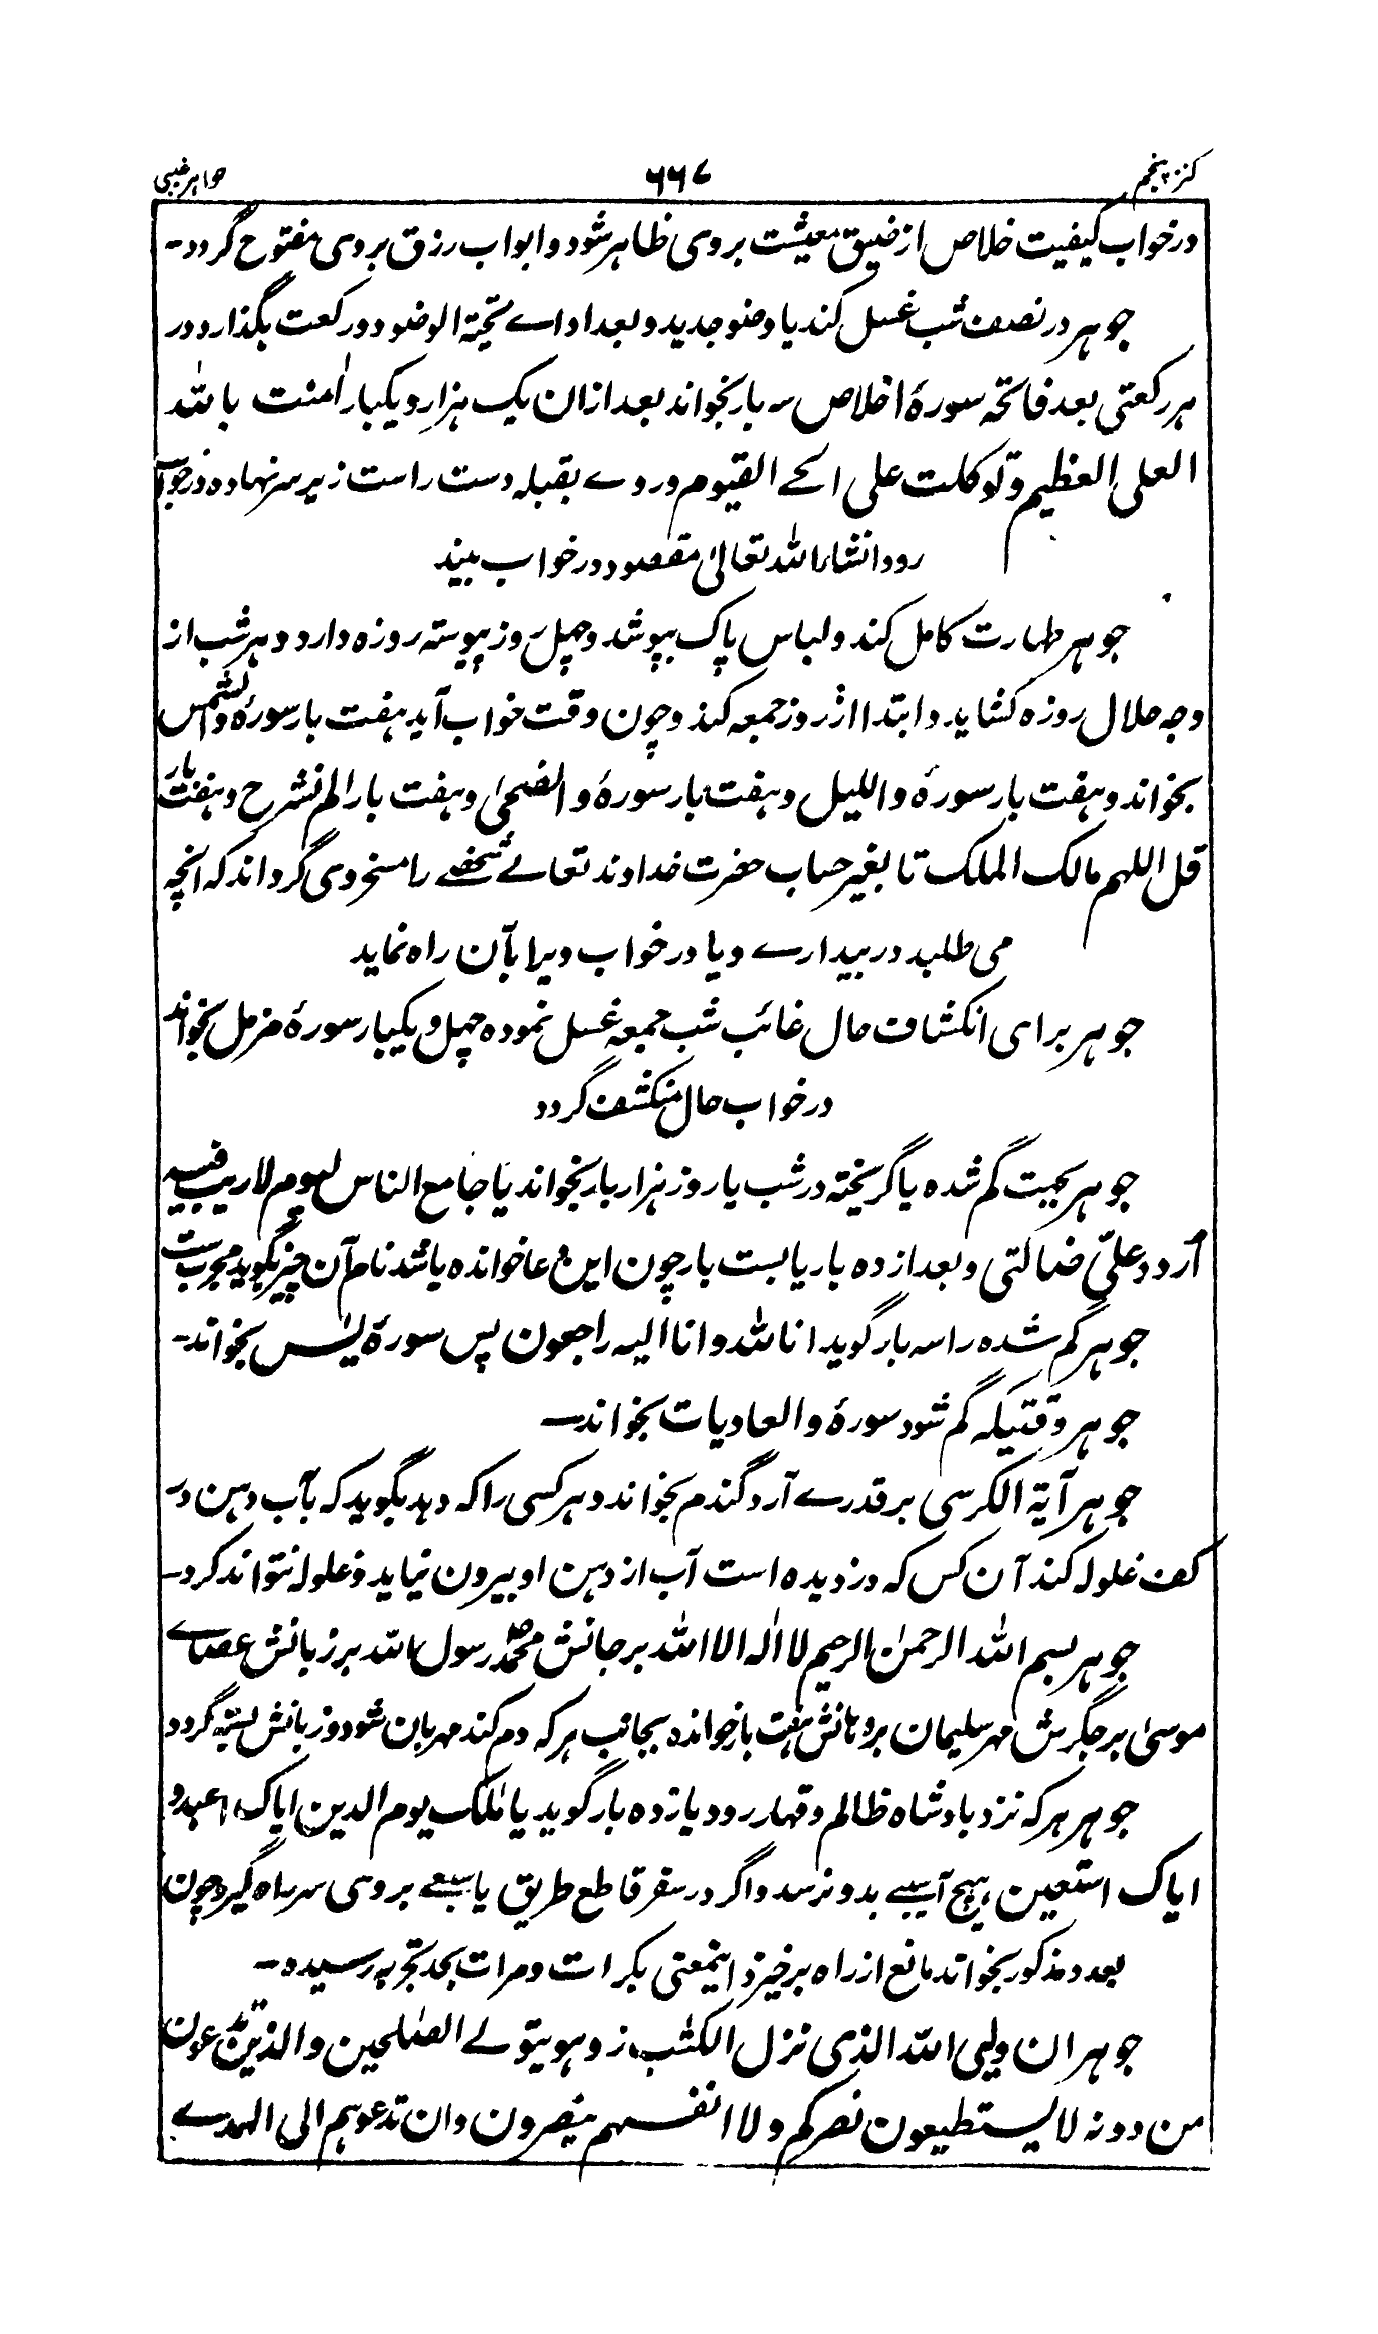 کنز پنجم ۶۶۷ جواہر غیبی
در خواب کیفیت خلاص از ضیق معیشت بروی ظاہر شود و ابواب رزق بروی مفتوح گردد۔
جوہر در نصف شب غسل کند یا وضو جدید و بعد اداے تحیۃ الوضو دو رکعت بگذارد و در
ہر رکعتی بعد فاتحہ سورۂ اخلاص سہ بار بخواند بعد ازان یک ہزار و یکبار اٰمنت باللہ
العلی العظیم و توکلت علی الحے القیوم و روے بقبلہ دست راست زیر سر نہادہ در خواب
رود انشاء اللہ تعالیٰ مقصود در خواب بیند
جوہر طہارت کامل کند و لباس پاک بپوشد و چہل روز پیوستہ روزہ دارد و ہر شب از
وجہ حلال روزہ کشاید و ابتدا از روز جمعہ کند و چون وقت خواب آید ہفت بار سورۂ والشمس
بخواند و ہفت بار سورۂ واللیل و ہفت بار سورۂ والضحیٰ و ہفت بار الم نشرح و ہفت بار
قل اللہم مالک الملک تا بغیر حساب حضرت خداوند تعالے شخصے را مسخر وی گرداند کہ آنچہ
می طلبد در بیدارے و یا در خواب ویرا بآن راہ نماید
جوہر برای انکشاف حال غائب شب جمعہ غسل نمودہ چہل و یکبار سورۂ مزمل بخواند
در خواب حال منکشف گردد
جوہر بجہت گم شدہ یا گریختہ در شب یا روز ہزار بار بخواند یا جامع الناس لیوم لاریب فیہ
اُردد علیّ ضالتی و بعد از دہ بار یا بست بار چون این دعا خواندہ باشد نام آن چیز بگوید مجرب ست
جوہر گم شدہ را سہ بار گوید انا للہ و انا الیہ راجعون پس سورۂ یٰس بخواند۔
جوہر وقتیکہ گم شود سورۂ والعادیات بخواند۔
جوہر آیۃ الکرسی بر قدرے آرد گندم بخواند و ہر کسی را کہ دہد بگوید کہ بآب دہن در
کف غلولہ کند آن کس کہ دزدیدہ است آب از دہن او بیرون نیاید و غلولہ نتواند کرد۔
جوہر بسم اللہ الرحمٰن الرحیم لا الٰہ الا اللہ بر جانش محمدؐ رسول اللہ بر زبانش عصاے
موسیٰ بر جگرش مہر سلیمان بر دہانش ہفت بار خواندہ بجانب ہر کہ دم کند مہربان شود و زبانش بستہ گردد
جوہر ہر کہ نزد بادشاہ ظالم و قہار رود یازدہ بار گوید یا مٰلک یوم الدین ایاک اعبد و
ایاک استعین ہیچ آسیبے بدو نرسد و اگر در سفر قاطع طریق یا سبعے بروی سر راہ گیرد چون
بعدد مذکور بخواند مانع از راہ برخیزد اینمعنی بکرات و مرات بحد تجربہ رسیدہ۔
جوہر ان ولی اللہ الذی نزل الکتٰب ز وہو یتولے الصٰلحین والذین تدعون
من دونہ لا یستطیعون نصرکم ولا انفسہم ینصرون وان تدعوہم الی الہدے